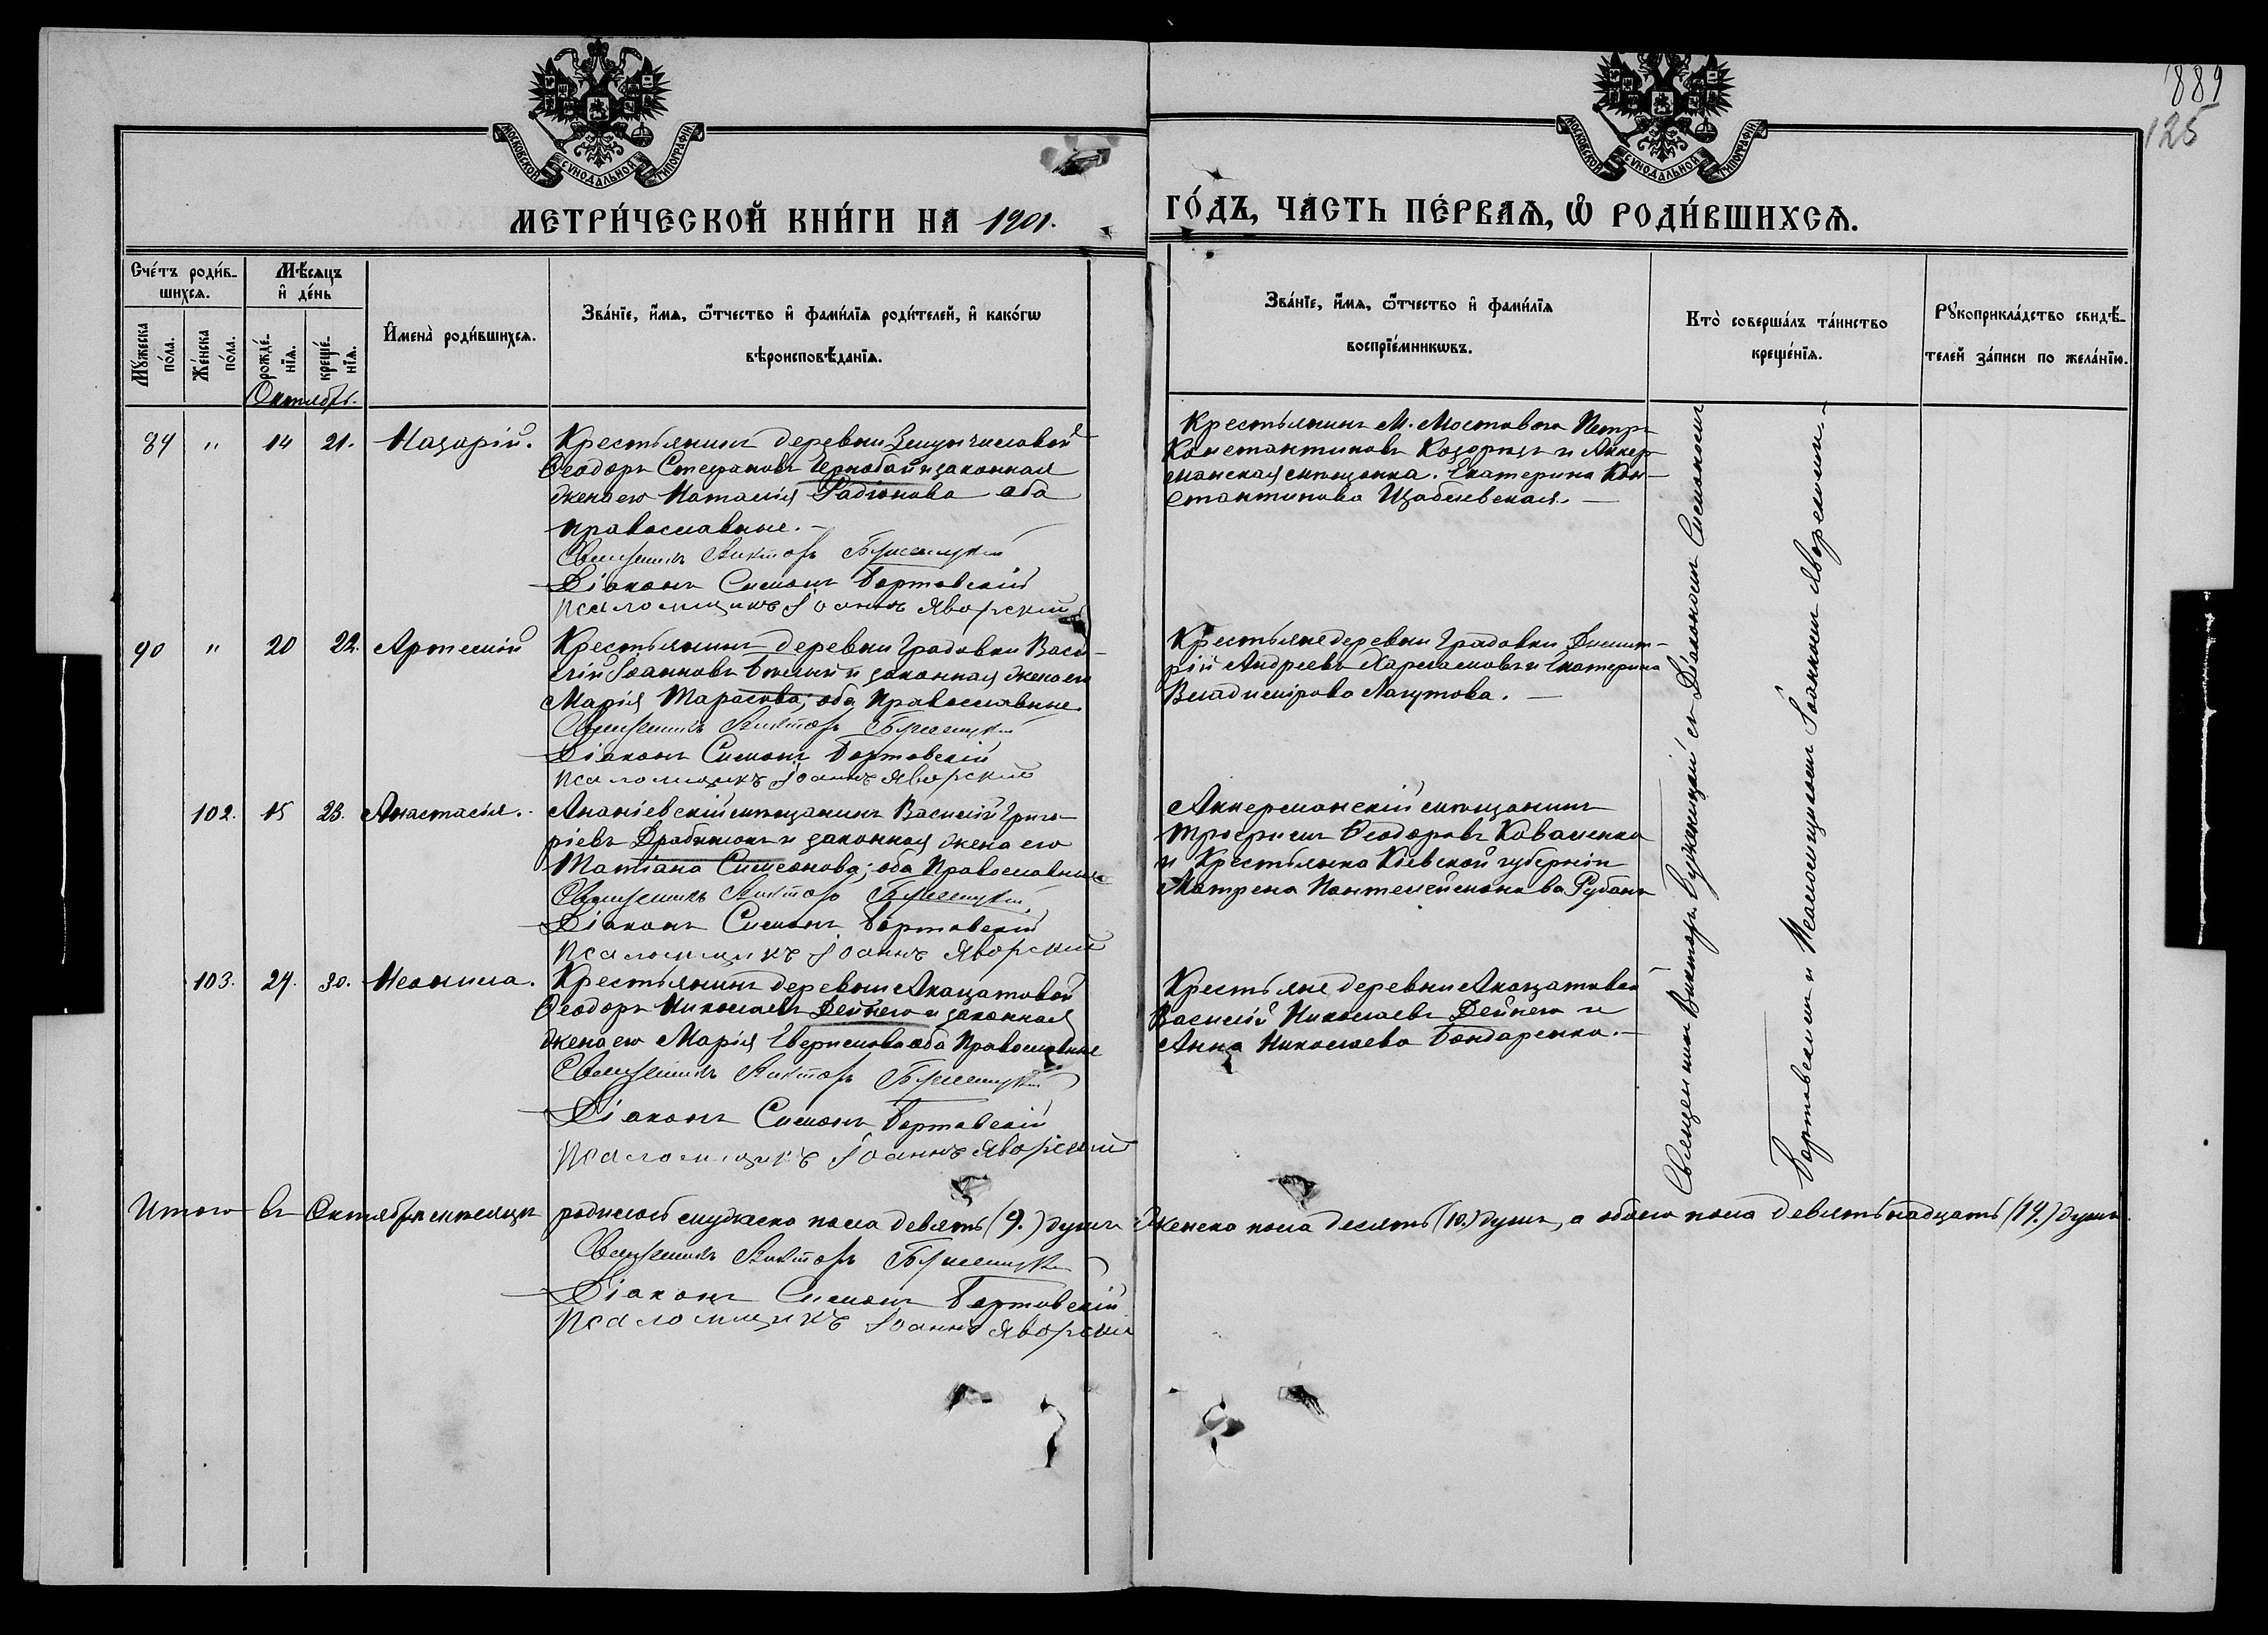 889
125
МОСКОВСКОЙ СѴНОДАЛЬНОЙ ТИПОГРАФІИ
МОСКОВСКОЙ СѴНОДАЛЬНОЙ ТИПОГРАФІИ
МЕТРИ́ЧЕСКОЙ КНИ́ГИ НА 1901. ГО́ДЪ, ЧА́СТЬ ПЕ́РВАѦ, Ѡ҆ РОДИ́ВШИХСѦ.
Сче́тъ роди́в-
шихсѧ.
Мꙋ́жеска по́ла.
Же́нска по́ла.
Мѣ́сѧцъ
и҆ де́нь
рожде́-нїѧ.
креще́-нїѧ.
Октябрь.
И҆мена̀ роди́вшихсѧ.
Зва́нїе, и҆́мѧ, ѻ҆́тчество и҆ фами́лїѧ роди́телей, и҆ како́гѡ
вѣроисповѣ́данїѧ.
Зва́нїе, и҆́мѧ, ѻ҆́тчество и҆ фами́лїѧ
воспрїе́мникѡвъ.
Кто̀ соверша́лъ та́инство
креще́нїѧ.
Рꙋкоприкла́дство свидѣ́-
телей за́писи по жела́нїю.
89 " 14 21. Назарій. Крестьянинъ деревни
Ѳеодоръ Стефановъ Чернобай и законная
жена его Наталія Радіонова оба
православные.
Священникъ Викторъ
Діаконъ Симонъ Бортовскій
Псаломщикъ Іоаннъ Яворскій
Крестьянинъ М. Мостового Петръ
Константиновъ Козорезъ и Аккер-
манская мѣщанка. Екатерина Кон-
стантинова Щаблевская.
90 " 20 22. Артемій Крестьянинъ деревни Градовки Васи-
лій Іоанновъ Бѣлый и законная жена его
Марія Тарасова; оба Православные.
Священникъ Викторъ
Діаконъ Симонъ Бортовскій
Псаломщикъ Іоаннъ Яворскій
Крестьяне деревни Градовки Димит-
рій Андреевъ Харламовъ и Екатерина
Владимірова Лагутова.
102. 15 23. Анастасія. Ананіевскій мѣщанинъ Василій Григо-
ріевъ Драбинокъ и законная жена его
Татіана Симеонова; оба Православные
Священникъ Викторъ
Діаконъ Симонъ Бортовскій
Псаломщикъ Іоаннъ Яворскій
Аккерманскій мѣщанинъ
Трофимъ Ѳеодоровъ Коваленко
и Крестьянка Кіевской губерніи
Матрена Пантелеймонова Рубанъ
103. 29. 30. Неонила. Крестьянинъ деревни Акацатовой
Ѳеодоръ Николаевъ Дейнего и законная
жена его Марія оба Православные
Священникъ Викторъ
Діаконъ Симонъ Бортовскій
Псаломщикъ Іоаннъ Яворскій
Крестьяне деревни Акацатовой
Василій Николаевъ Дейнего и
Анна Николаева Бондаренко.
Священникъ Викторъ съ Діакономъ Симономъ
Бортовскимъ и Псаломщикомъ Іоанномъ Яворскимъ.
Итого въ Октябрѣ мѣсяцѣ родилось мужеска пола девять (9.) душъ женска пола десять (10.) душъ, а обоего пола девятьнадцать (19.) душъ.
Священникъ Викторъ
Діаконъ Симонъ Бортовскій
Псаломщикъ Іоаннъ Яворскій